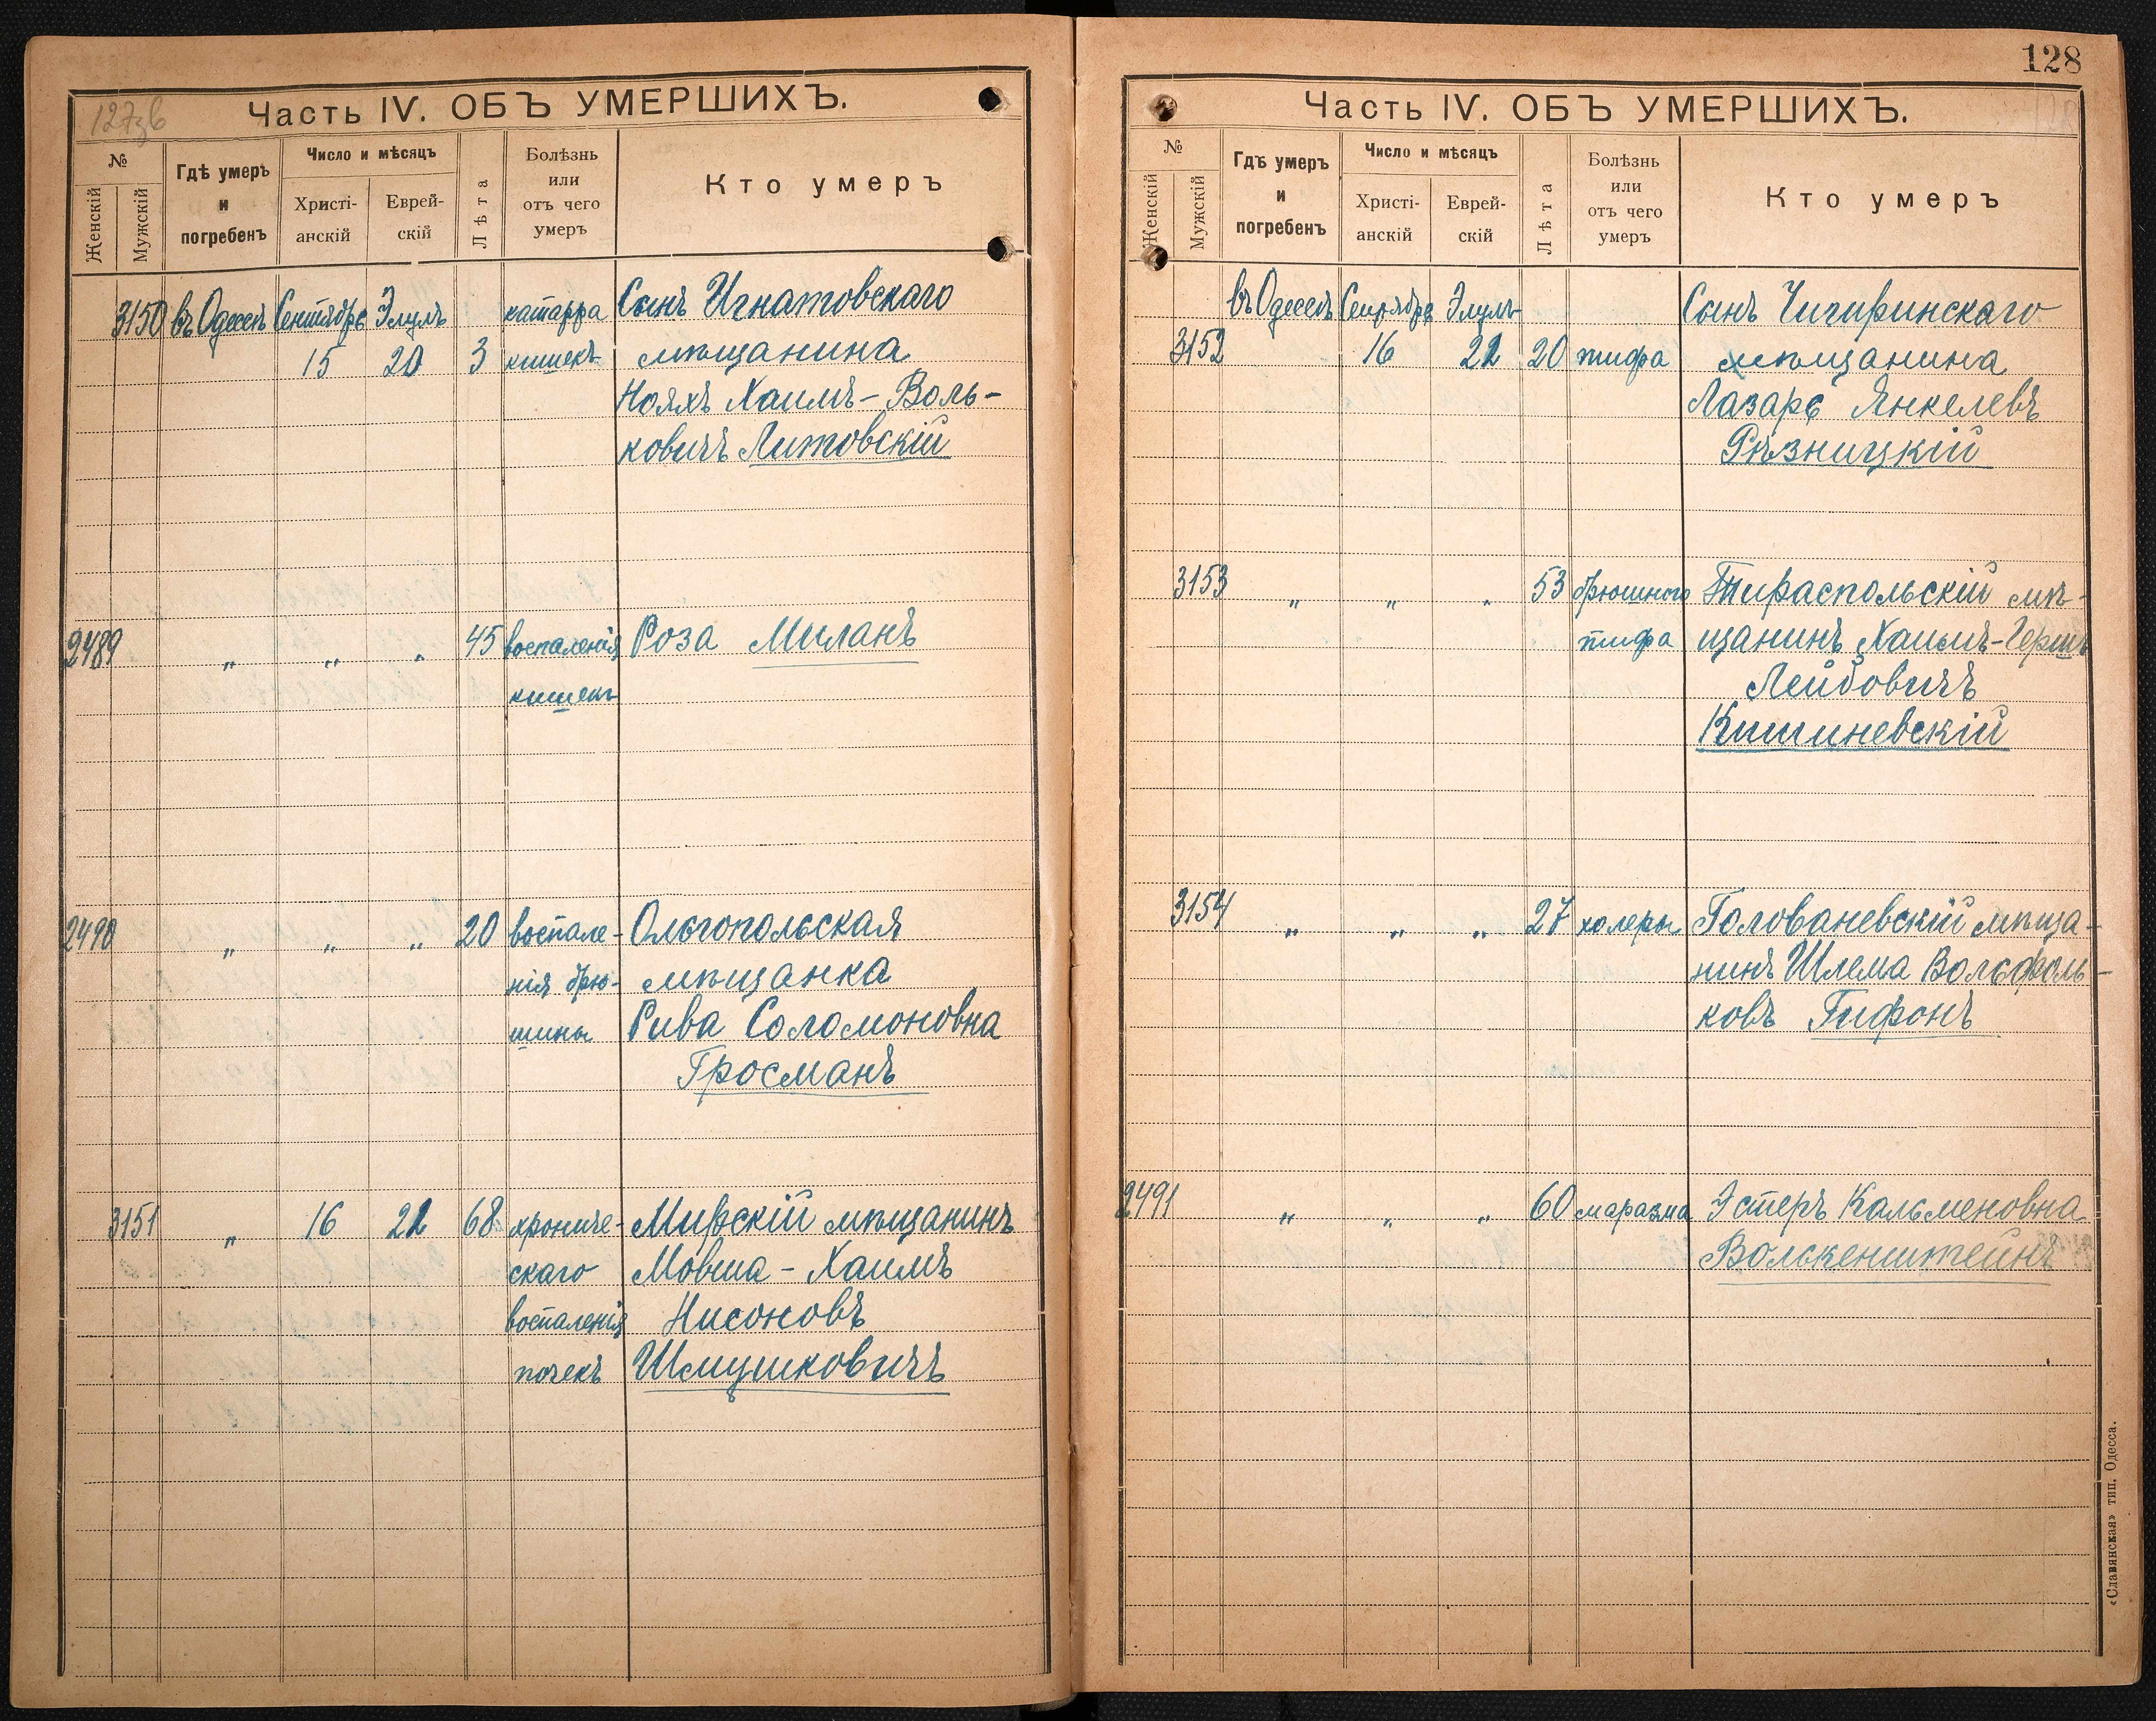 127зб
Часть IV. ОБЪ УМЕРШИХЪ.
№
Женскій
Мужскій
Гдѣ умеръ
и
погребенъ
Число и мѣсяцъ
Христі-
анскій
Еврей-
скій
Лѣта
Болѣзнь
или
отъ чего
умеръ
Кто умеръ
3150 въ Одессѣ Сентябрь Элулъ катарра Сынъ Игнатовскаго
15 20 3 кишекъ мѣщанина
Нояхъ Хаимъ-Воль-
ковичъ Литовскій
2489 " " " 45 воспаленія Роза Миланъ
кишекъ
2490 " " " 20 воспале- Ольгопольская
нія брю- мѣщанка
шины Рива Соломоновна
Гросманъ
3151 " 16 21 68 хрониче- Мирскій мѣщанинъ
скаго Мовша-Хаимъ
воспаленія Нисоновъ
почекъ Шмушковичъ
128
Часть IV. ОБЪ УМЕРШИХЪ.
№
Женскій
Мужскій
Гдѣ умеръ
и
погребенъ
Число и мѣсяцъ
Христі-
анскій
Еврей-
скій
Лѣта
Болѣзнь
или
отъ чего
умеръ
Кто умеръ
въ Одессѣ Сентябрь Элулъ Сынъ Чигиринскаго
3152 16 21 20 тифа мѣщанина
Лазарь Янкелевъ
Рѣзницкій
3153 " " " 53 брюшного Тираспольскій мѣ-
тифа щанинъ Хаимъ-Гершъ
Лейбовичъ
Кишиневскій
3154 " " " 27 холеры Голованевскій мѣща-
нинъ Шлема Волѳфоль-
ковъ Гифонъ
2491 " " " 60 маразма Эстеръ Кальменовна
Волькенштейнъ
«Славянская» тип. Одесса.